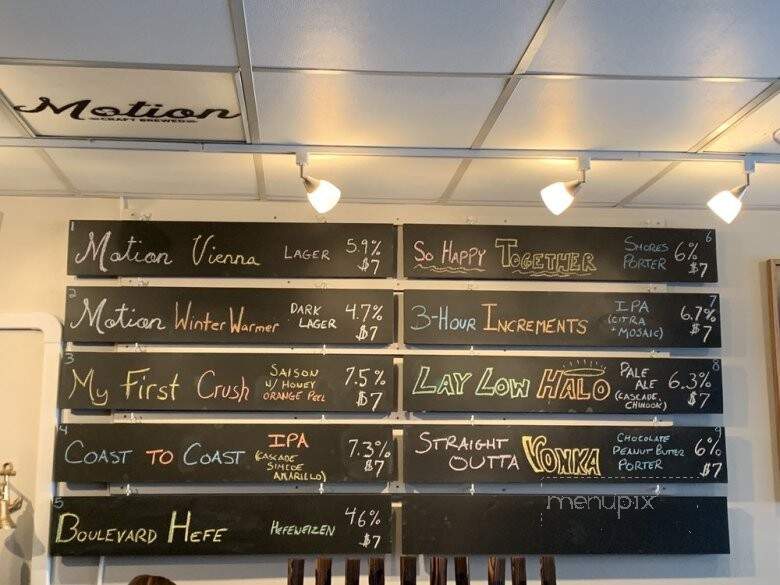 Motion
CRAFT BREWED
1
Motion Vienna LAGER 5.9% $7
2
Motion Winter Warmer DARK LAGER 4.7% $7
3
My First Crush SAISON W/ HONEY ORANGE PEEL 7.5% $7
4
COAST TO COAST IPA (CASCADE SIMCOE AMARILLO) 7.3% $7
5
BOULEVARD HEFE HEFEWEIZEN 4.6% $7
6
SO HAPPY TOGETHER SMORES PORTER 6% $7
7
3-HOUR INCREMENTS IPA (CITRA + MOSAIC) 6.7% $7
8
LAY LOW HALO PALE ALE (CASCADE, CHINOOK) 6.3% $7
9
STRAIGHT OUTTA WONKA CHOCOLATE PEANUT BUTTER PORTER 6% $7
menupix